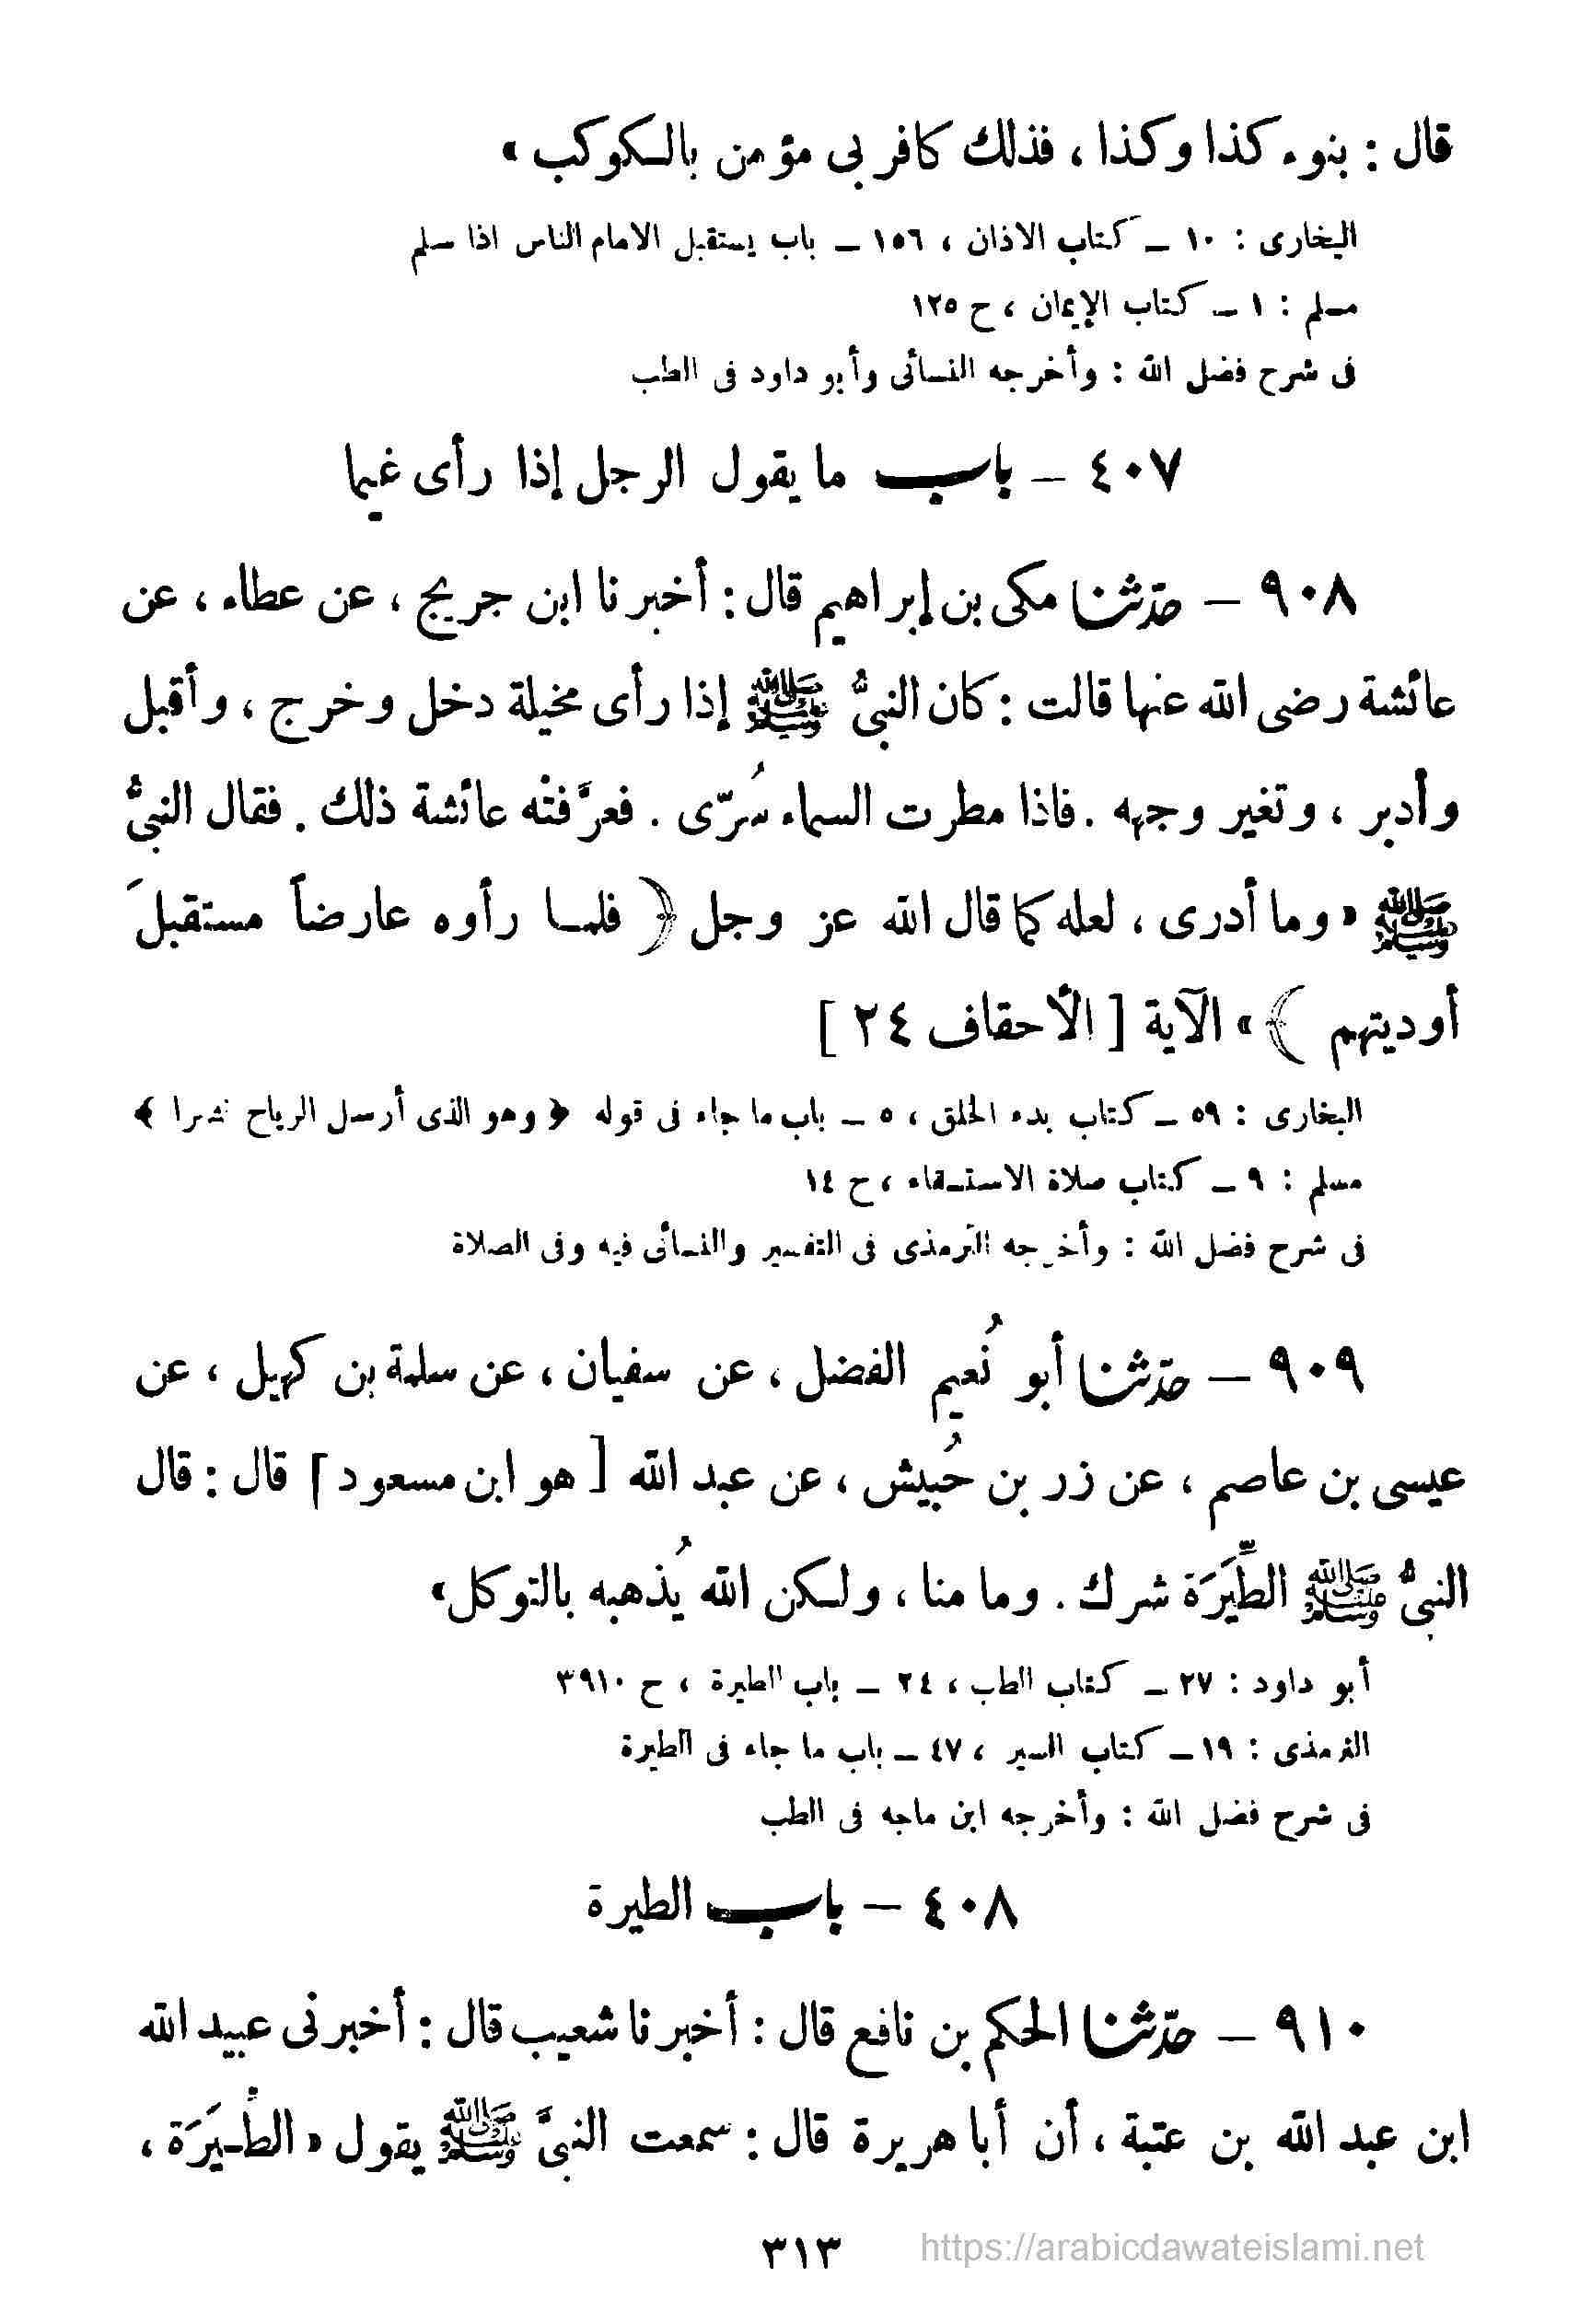 قال : بنوء كذا وكذا ، فذلك كافر بى مؤمن بالكوكب »
البخارى : ١٠ – كتاب الاذان ، ١٥٦ – باب يستقبل الامام الناس اذا سلم
مسلم : ١ – كتاب الإيمان ، ح ١٢٥
فى شرح فضل الله : وأخرجه النسائى وأبو داود فى الطب
٤٠٧ – باب ما يقول الرجل إذا رأى غيما
٩٠٨ – حدّثنا مكى بن إبراهيم قال : أخبرنا ابن جريج ، عن عطاء ، عن
عائشة رضى الله عنها قالت : كان النبىُّ ﷺ إذا رأى مخيلة دخل وخرج ، وأقبل
وأدبر ، وتغير وجهه . فاذا مطرت السماء سُرّى . فعرَّفتْه عائشة ذلك . فقال النبىُّ
ﷺ « وما أدرى ، لعله كما قال الله عز وجل ﴿ فلمـا رأوه عارضاً مستقبلَ
أوديتهم ﴾ » الآية [ الأحقاف ٢٤ ]
البخارى : ٥٩ – كتاب بدء الخلق ، ٥ – باب ما جاء فى قوله ﴿ وهو الذى أرسل الرياح نشرا ﴾
مسلم : ٩ – كتاب صلاة الاستسقاء ، ح ١٤
فى شرح فضل الله : وأخرجه الترمذى فى التفسير والنسائى فيه وفى الصلاة
٩٠٩ – حدّثنا أبو نُعيم الفضل ، عن سفيان ، عن سلمة بن كهيل ، عن
عيسى بن عاصم ، عن زر بن حُبيش ، عن عبد الله [ هو ابن مسعود ] قال : قال
النبىُّ ﷺ الطِّيَرَة شرك . وما منا ، ولكن الله يُذهبه بالتوكل »
أبو داود : ٢٧ – كتاب الطب ، ٢٤ – باب الطيرة ، ح ٣٩١٠
الترمذى : ١٩ – كتاب السير ، ٤٧ – باب ما جاء فى الطيرة
فى شرح فضل الله : وأخرجه ابن ماجه فى الطب
٤٠٨ – باب الطيرة
٩١٠ – حدّثنا الحكم بن نافع قال : أخبرنا شعيب قال : أخبرنى عبيد الله
ابن عبد الله بن عتبة ، أن أبا هريرة قال : سمعت النبىَّ ﷺ يقول « الطِّـيَرَة ،
٣١٣
https://arabicdawateislami.net